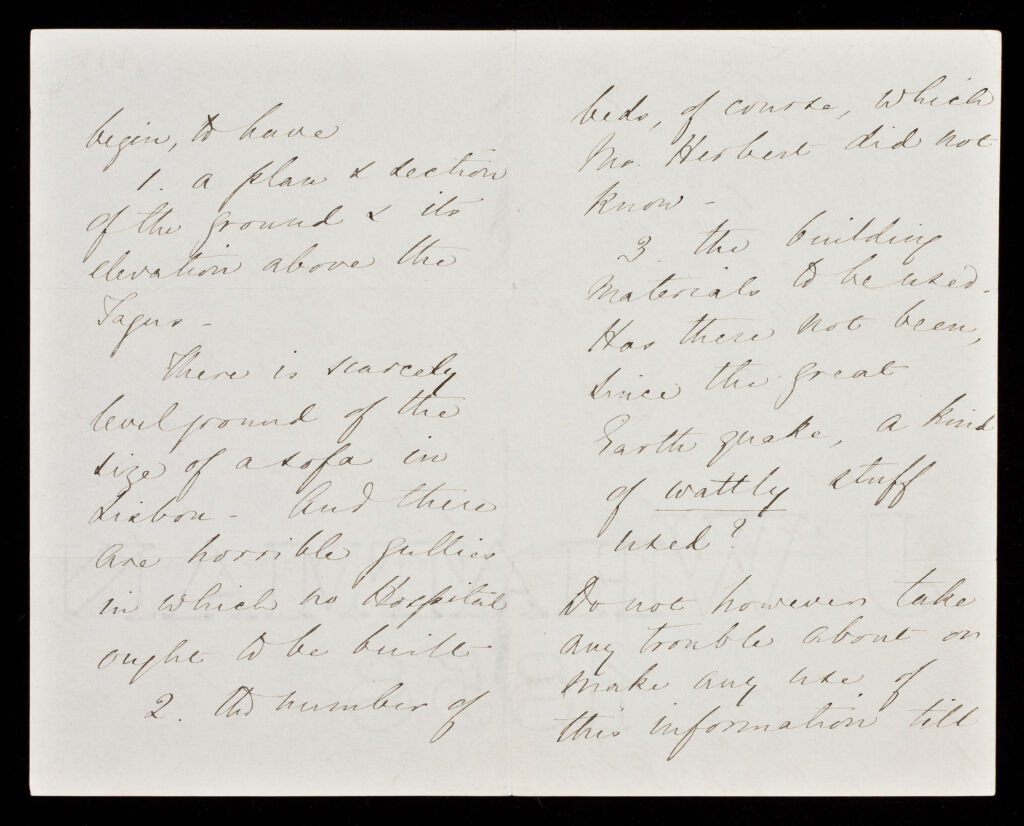 begin, to have
1. a plan & section
of the ground & its
elevation above the
Tagus -
There is scarcely
level ground of the
size of a sofa in
Lisbon - And there
are horrible gullies
in which no Hospital
ought to be built
2. the number of
beds, of course, which
Mr. Herbert did not
know -
3 the building
materials to be used.
Has there not been,
since the great
Earth quake, a kind
of wattly stuff
used?
Do not however take
any trouble about or
make any use of
this information till